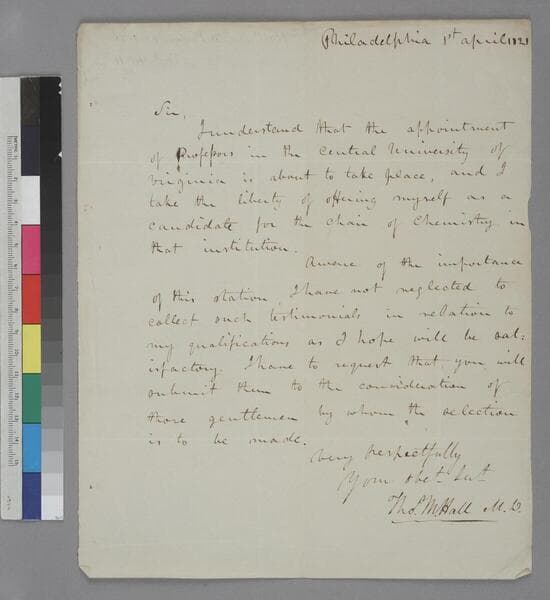 Philadelphia 1st april 1821
Sir,
I understand that the appointment
of Professors in the central University of
Virginia is about to take place, and I
take the liberty of offering myself as a
candidate for the chair of Chemistry in
that institution.
Aware of the importance
of this station, I have not neglected to
collect such testimonials in relation to
my qualifications as I hope will be sat:
isfactory. I have to request that you will
submit them to the consideration of
those gentlemen by whom the selection
is to be made.
Very respectfully
Your obet. Sut
Thos. M Hall M.D.